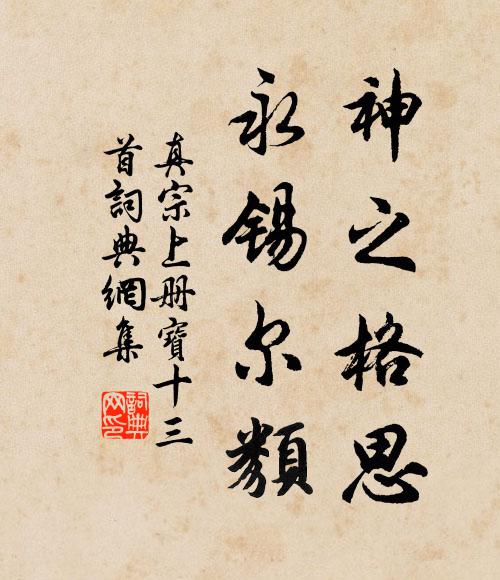 神之格思
永锡尔類
真宗上册寶十三
首詞典網集
詞典网印